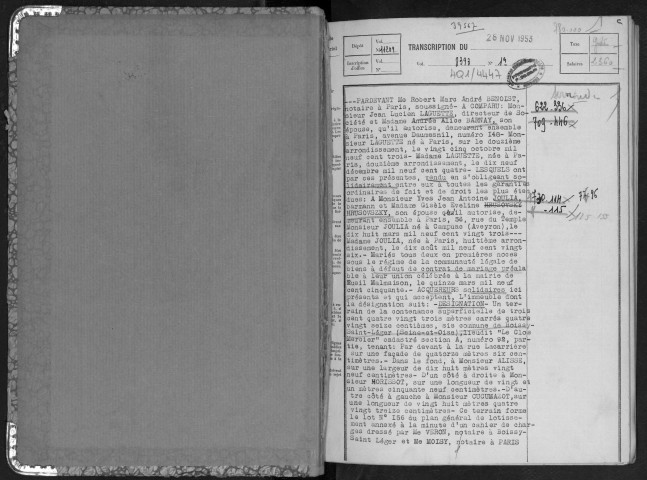 39367
26 NOV 1953
TRANSCRIPTION DU
Dépôt
Vol.
Vol. 8393 n° 19
4Q1/4447
Taxe
Salaires 1360
---PARDEVANT Me Robert Marc André BENOIST,
notaire à Paris, soussigné- A COMPARU: Mon-
sieur Jean Lucien LAGUETTE, directeur de So-
ciété et Madame Andrée Alice BARNAY, son
épouse, qu'il autorise, demeurant ensemble
à Paris, avenue Daumesnil, numéro 148- Mon-
sieur LAGUETTE né à Paris, sur le douzième
arrondissement, le vingt cinq octobre mil
neuf cent trois- Madame LAGUETTE, née à Pa-
ris, douzième arrondissement, le dix neuf
décembre mil neuf cent quatre- LESQUELS ont
par ces présentes, vendu en s'obligeant so-
lidairement entre eux à toutes les garanties
ordinaires de fait et de droit les plus éten-
dues: A Monsieur Yves Jean Antoine JOULIA,
barmann et Madame Gisèle Eveline HRUSOVSKY
HRUSOVSZKY, son épouse qu'il autorise, de-
meurant ensemble à Paris, 38, rue du Temple
Monsieur JOULIA né à Campuac (Aveyron), le
dix huit mars mil neuf cent vingt trois---
Madame JOULIA, née à Paris, huitième arron-
dissement, le dix août mil neuf cent vingt
six.- Mariés tous deux en premières noces
sous le régime de la communauté légale de
biens à défaut de contrat de mariage préala-
ble à leur union célébrée à la mairie de
Rueil Malmaison, le quinze mars mil neuf
cent cinquante.- ACQUEREURS solidaires ici
présents et qui acceptent. L'immeuble dont
la désignation suit: -DESIGNATION- Un ter-
rain de la contenance superficielle de trois
cent quatre vingt trois mètres carrés quatre
vingt seize centièmes, sis commune de Boissy-
Saint-Léger (Seine-et-Oise), lieudit "Le Clos
Mercier" cadastré section A, numéro 98, par-
tie, tenant: Par devant à la rue Lacarrière
sur une façade de quatorze mètres six cen-
timètres.- Dans le fond, à Monsieur ALISSE,
sur une largeur de dix huit mètres vingt
neuf centimètres- D'un côté à droite à Mon-
sieur HORIEDOT, sur une longueur de vingt et
un mètres cinquante neuf centimètres.-D'au-
tre côté à gauche à Monsieur CUCUMASOT, sur
une longueur de vingt huit mètres quatre
vingt treize centimètres- Ce terrain forme
le lot N° 156 du plan général de lotisse-
ment annexé à la minute d'un cahier de char-
ges dressé par Me VERON, notaire à Boissy-
Saint Léger et Me MOISY, notaire à PARIS
622-336
709-446